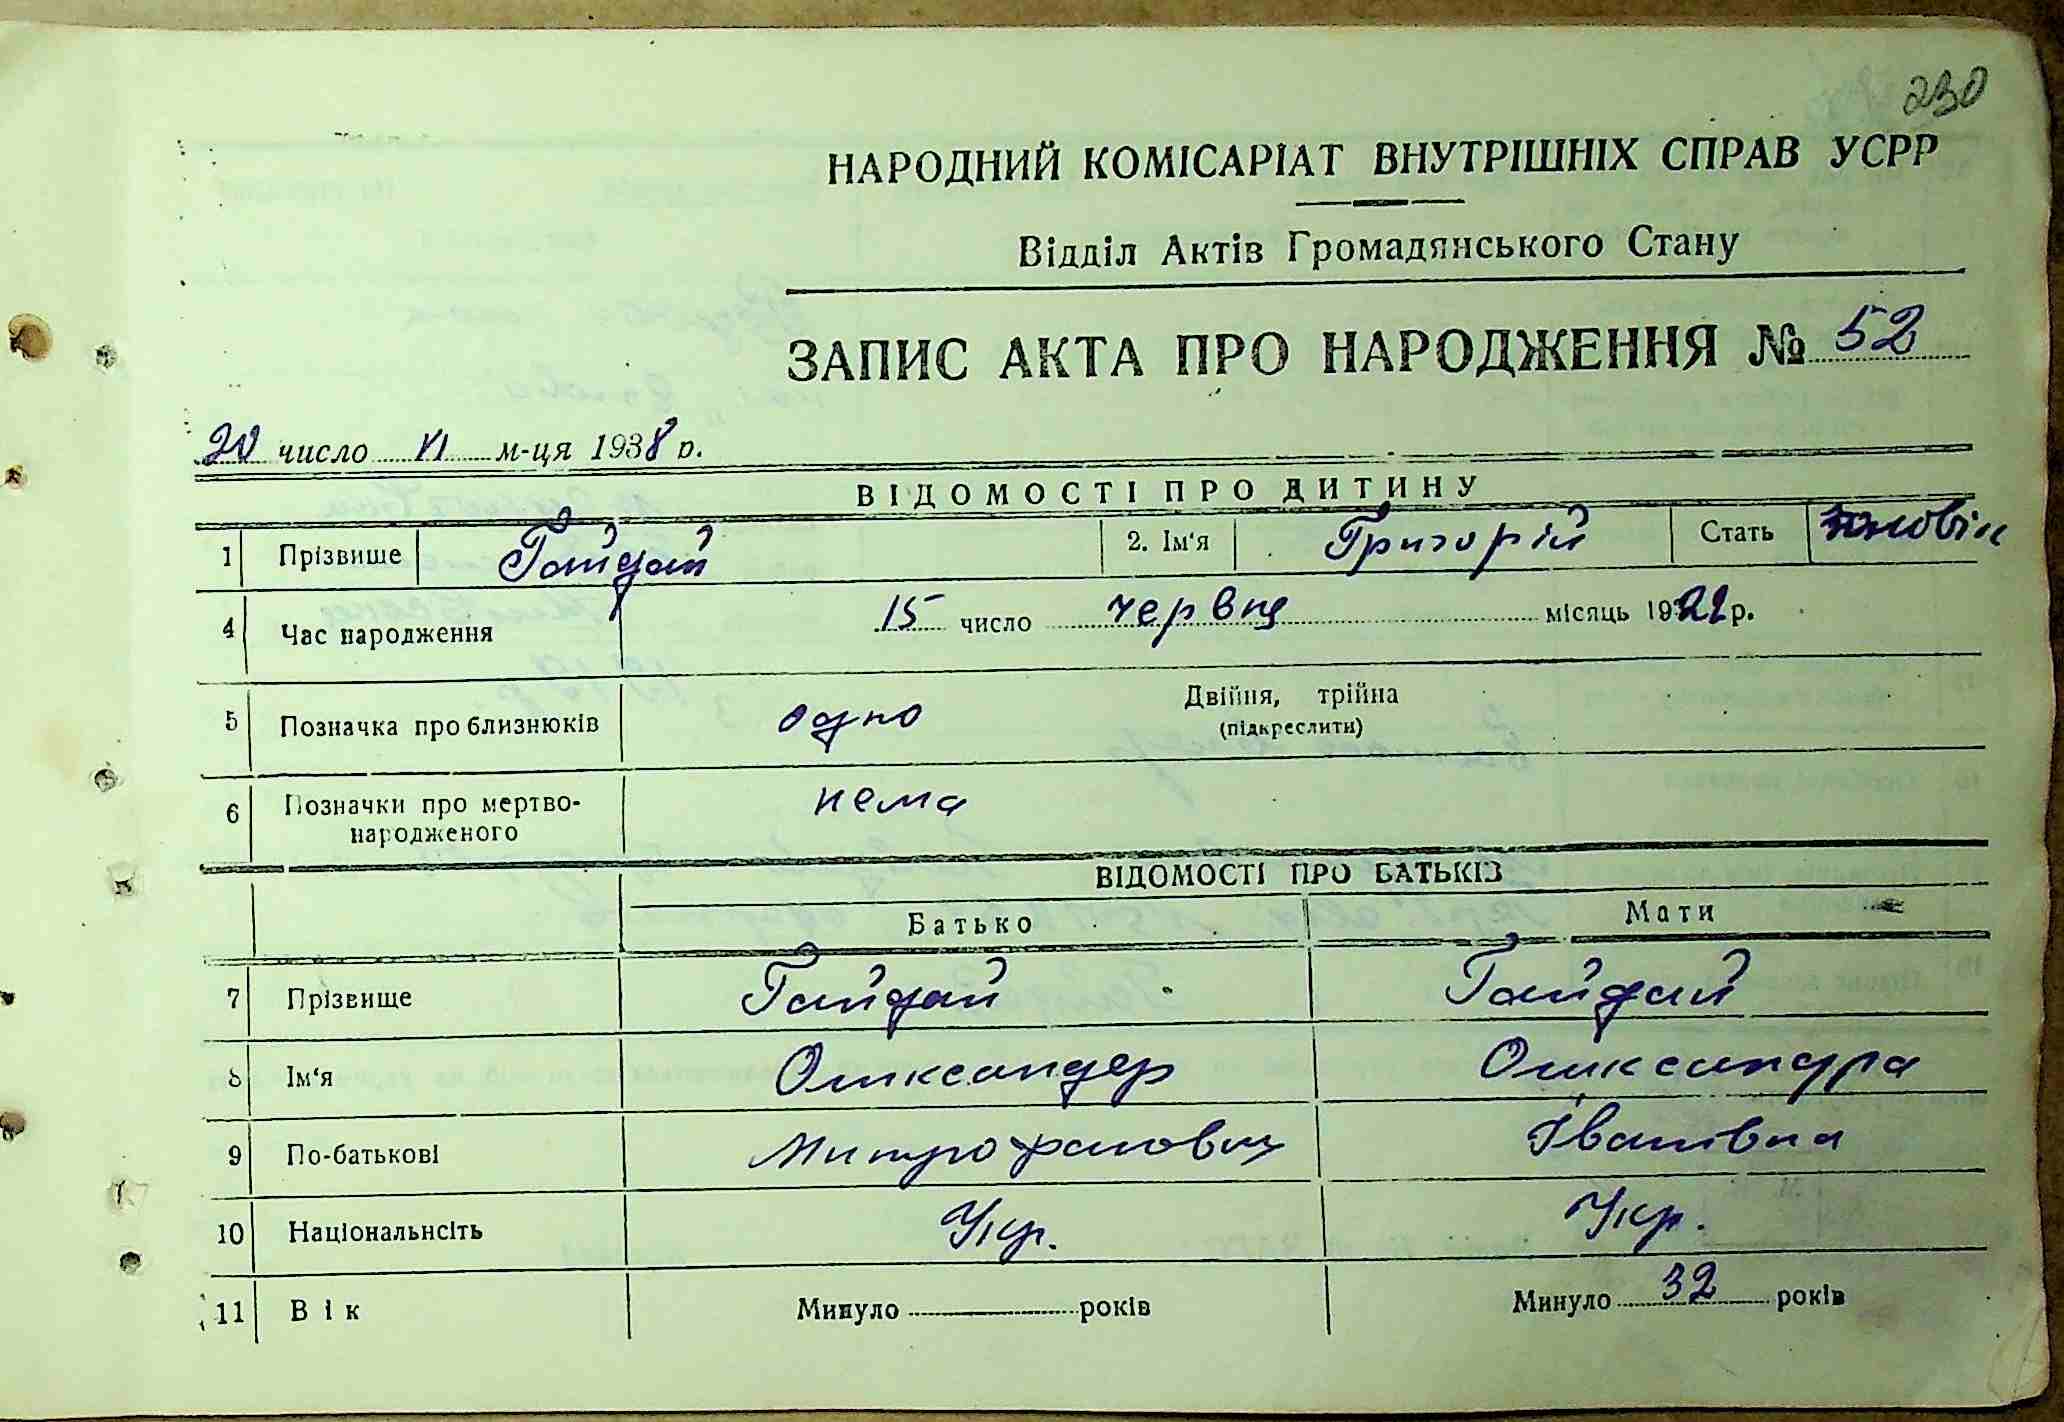 230
НАРОДНИЙ КОМІСАРІАТ ВНУТРІШНІХ СПРАВ УСРР
Відділ Актів Громадянського Стану
ЗАПИС АКТА ПРО НАРОДЖЕННЯ № 52
20 число VI м-ця 1938 р.
ВІДОМОСТІ ПРО ДИТИНУ
1 Прізвише Гайдай 2. Ім'я Григорій Стать
4 Час народження 15 число червня місяць 1922 р.
5 Позначка про близнюків одно Двійня, трійна
(підкреслити)
6 Позначки про мертво-
народженого нема
ВІДОМОСТІ ПРО БАТЬКІВ
Батько Мати
7 Прізвище Гайдай Гайдай
8 Ім'я Олександер Олександра
9 По-батькові Митрофанович Іванівна
10 Національнсіть Укр. Укр.
11 Вік Минуло років Минуло 32 років